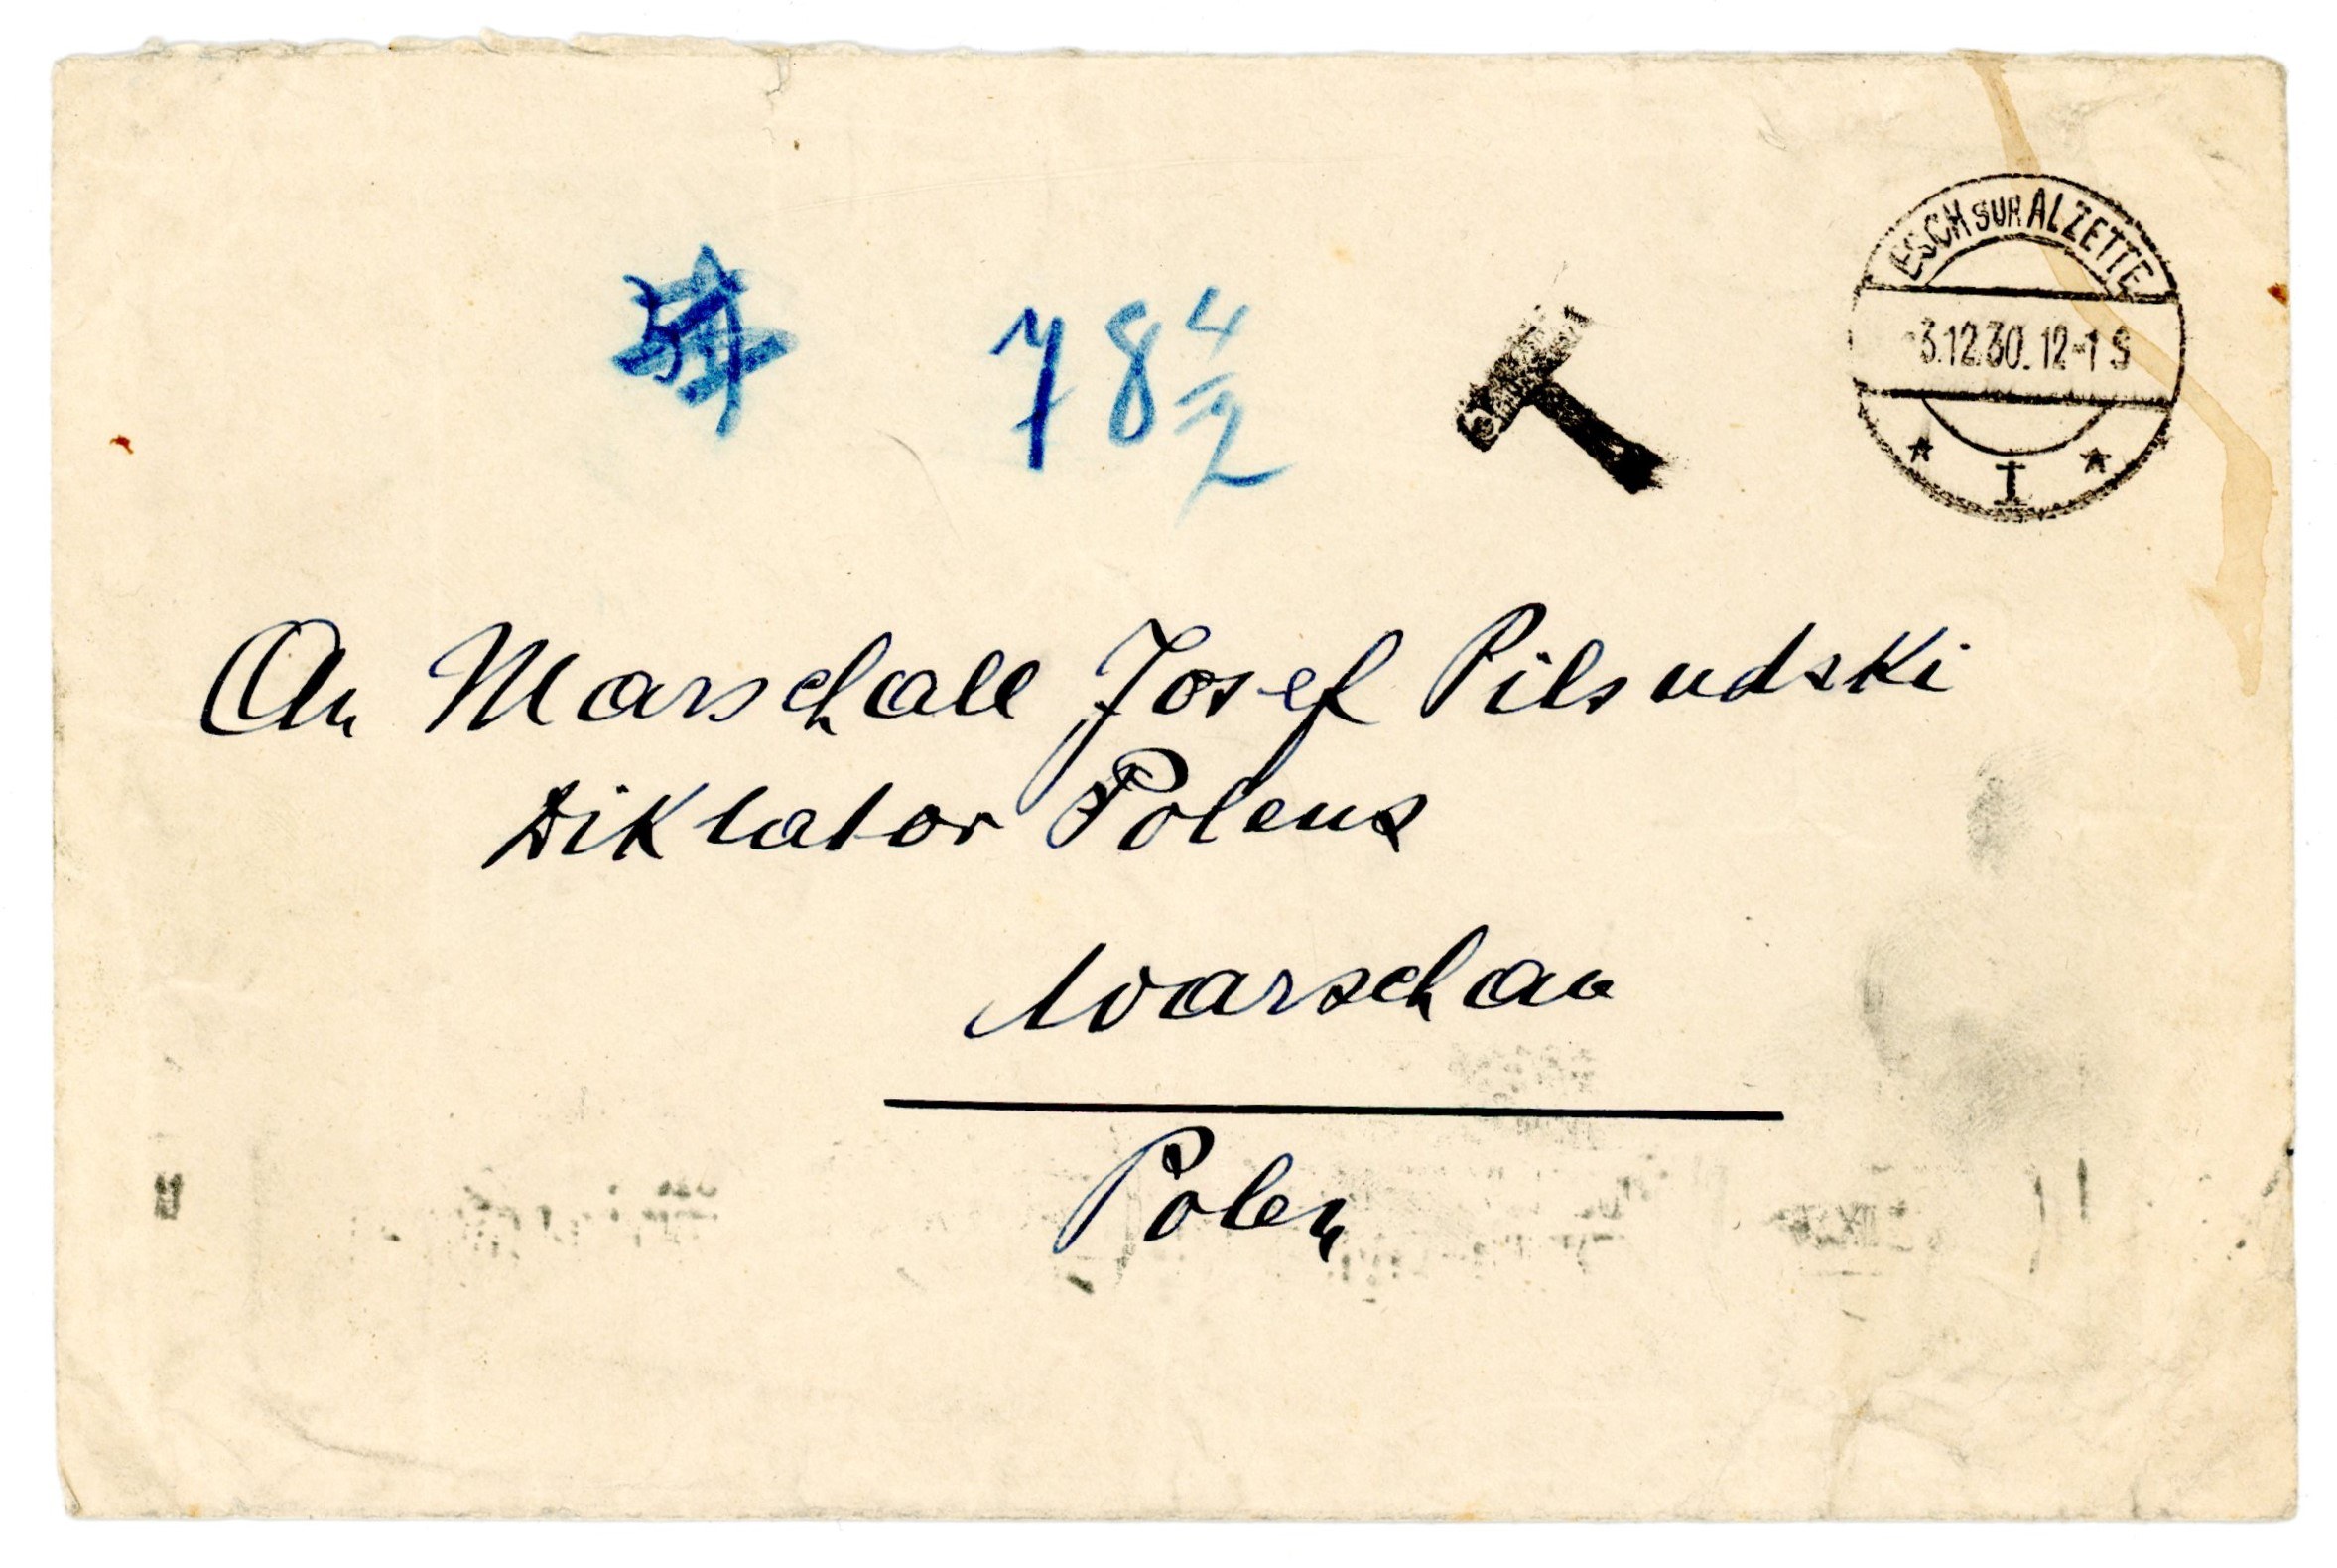 ESCH SUR ALZETTE
3.12.30. 12-1 S
* I *
T
78 4/2
An Marschall Josef Pilsudski
Diktator Polens
Warschau
Polen